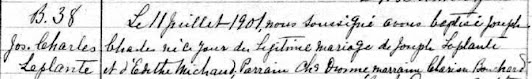 B. 38
Jos. Charles
Leplante
Le 11 Juillet 1901, nous soussigné avons baptisé Joseph
Charles né ce jour du légitime mariage de Joseph Leplante
et d'Edithe Michaud, Parrain Chs Dionne marraine Clarisse Bouchard